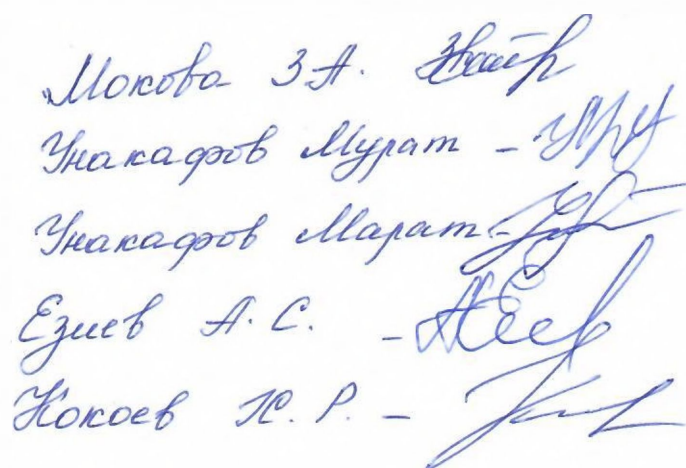 Мокова З.А.
Унакафов Мурат -
Унакафов Марат -
Езиев А. С. -
Кокоев Х. Р. -